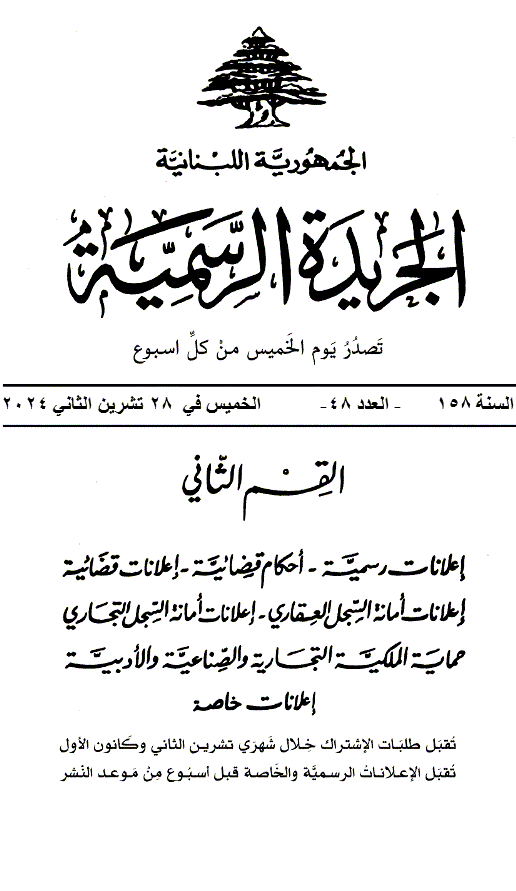 الجُمهُوريَّة اللبْنانيَّة
الجَريدَة الرسَّمِيَّة
تَصدُرُ يَوم الخَميس منْ كلِّ اسبوع
السنة ١٥٨ - العدد ٤٨- الخميس في ٢٨ تشرين الثاني ٢٠٢٤
القِسْم الثّاني
إعلانات رسميَّة - أحكام قضائيَّة - إعلانات قضائية
إعلانات أمانة السّجل العقاري - إعلانات أمانة السّجل التجاري
حماية الملكيَّة التجارية والصّناعيَّة والأدبيَّة
إعلانات خاصة
تُقبَل طلبَات الإشتراك خِلال شَهرَي تشرين الثاني وكَانون الأول
تُقبَل الإعلاناتُ الرسميَّة والخَاصة قبل أسبُوع مِنْ مَوعد النَشر